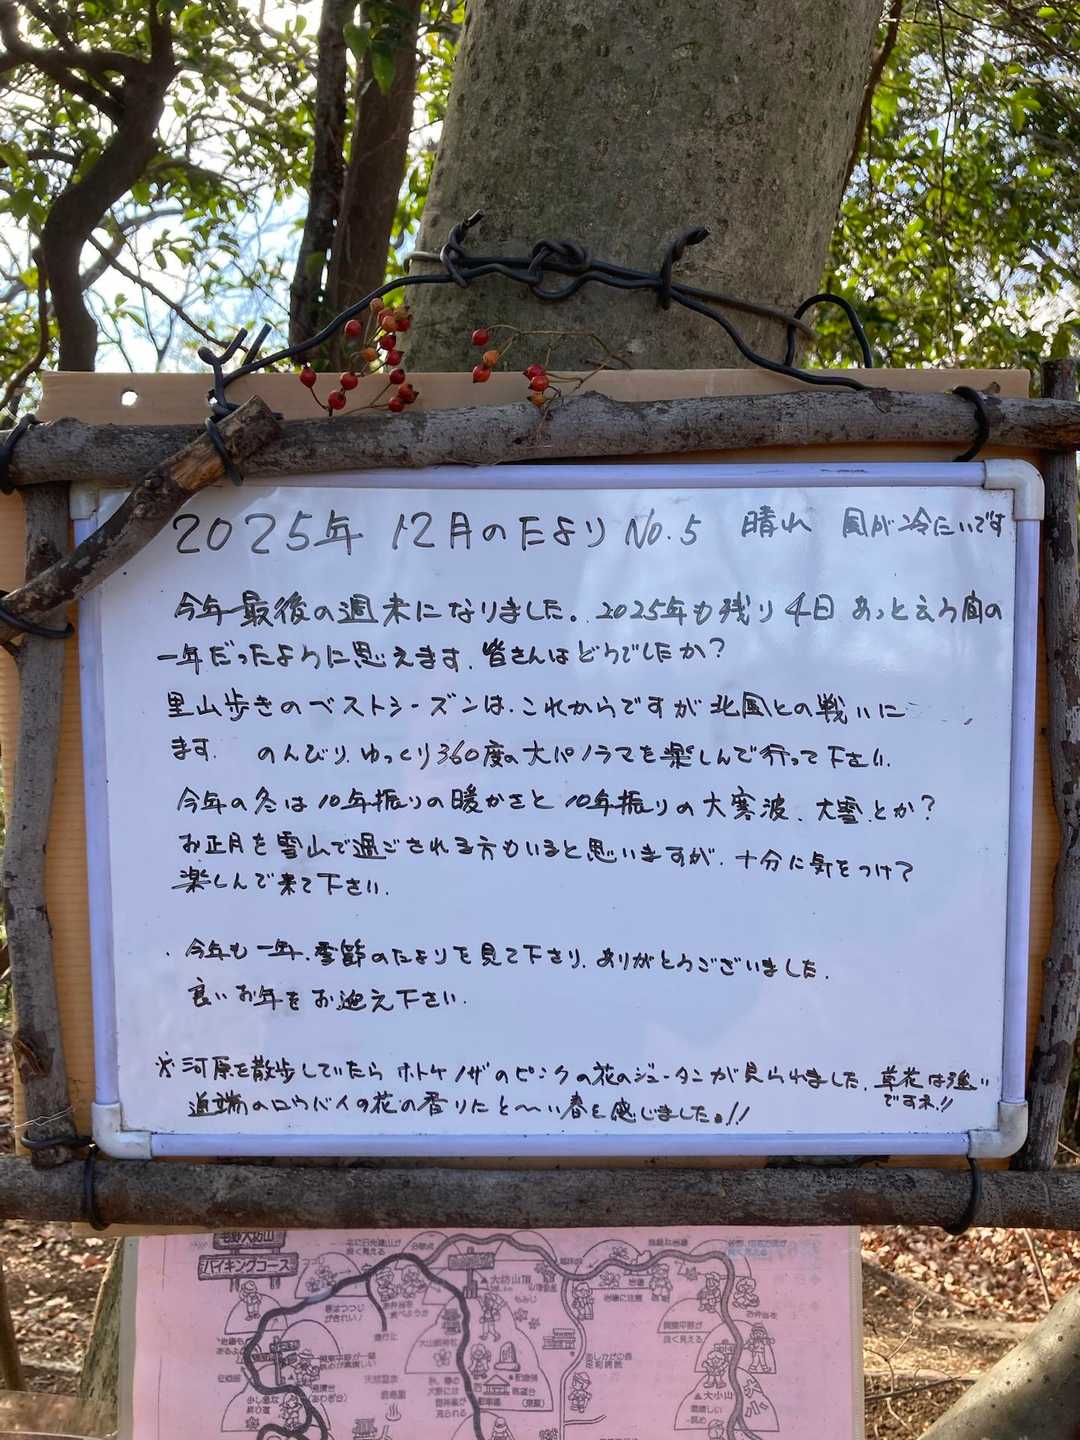 2025年 12月のたより No.5 晴れ 風が冷たいです
今年最後の週末になりました。2025年も残り4日 あっと云う間の
一年だったように思えます。皆さんはどうでしたか?
里山歩きのベストシーズンは、これからですが北風との戦いに
ます。 のんびり、ゆっくり360度の大パノラマを楽しんで行って下さい。
今年の冬は10年振りの暖かさと10年振りの大寒波、大雪とか?
お正月を雪山で過ごされる方もいると思いますが、十分に気をつけて
楽しんで来て下さい。
・今年も一年、季節のたよりを見て下さり、ありがとうございました。
良いお年をお迎え下さい。
※河原を散歩していたらホトケノザのピンクの花のジュータンが見られました。草花は強い
ですネ!!
道端のロウバイの花の香りにと〜い春を感じました。!!
ハイキングコース
大坊山頂
もみじ
春はつつじ
がきれい!
お弁当を
食べようか
岩場に注意
関東平野が
良く見える
関東平野が一望
大山祇神社
あしかがの森
足利病院
見晴台
駐車場
展望台
大小山